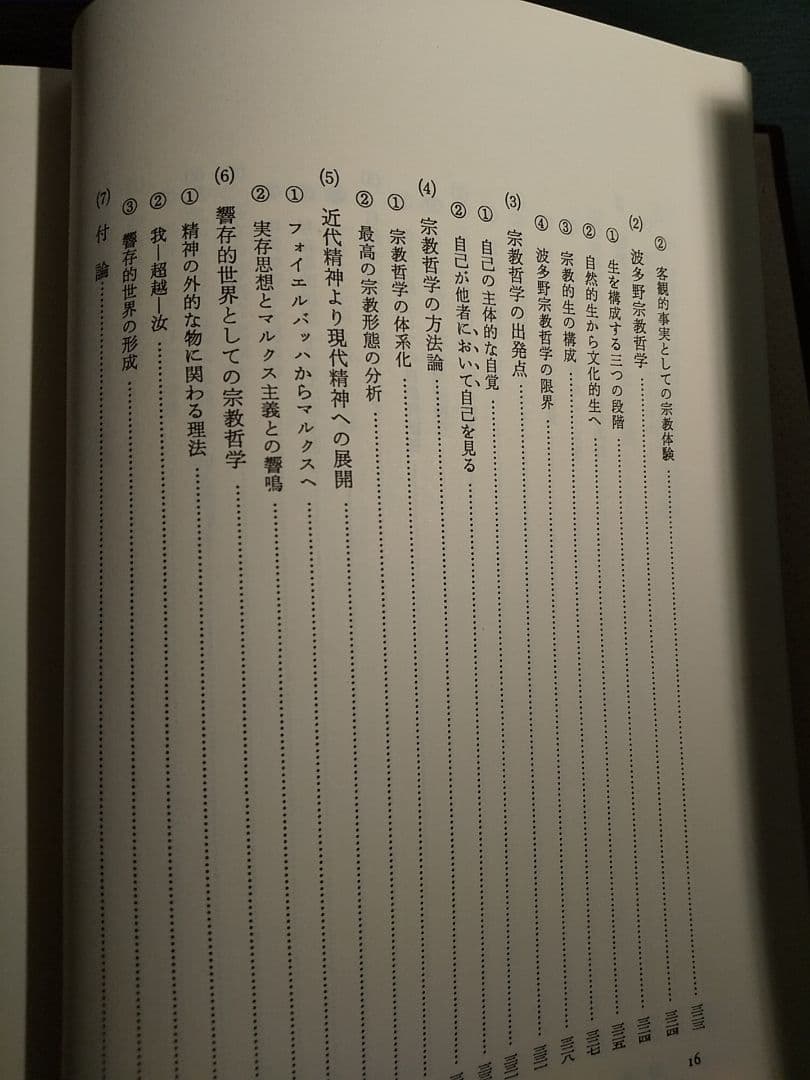 ② 客観的事実としての宗教体験……三三三
(2) 波多野宗教哲学……三三四
① 生を構成する三つの段階……三三四
② 自然的生から文化的生へ……三三五
③ 宗教的生の構成……三三七
④ 波多野宗教哲学の限界……三三八
(3) 宗教哲学の出発点……
① 自己の主体的な自覚……
② 自己が他者において自己を見る……
(4) 宗教哲学の方法論……
① 宗教哲学の体系化……
② 最高の宗教形態の分析……
(5) 近代精神より現代精神への展開……
① フォイエルバッハからマルクスへ……
② 実存思想とマルクス主義との響鳴……
(6) 響存的世界としての宗教哲学……
① 精神の外的な物に関わる理法……
② 我―超越―汝……
③ 響存的世界の形成……
(7) 付論……
16